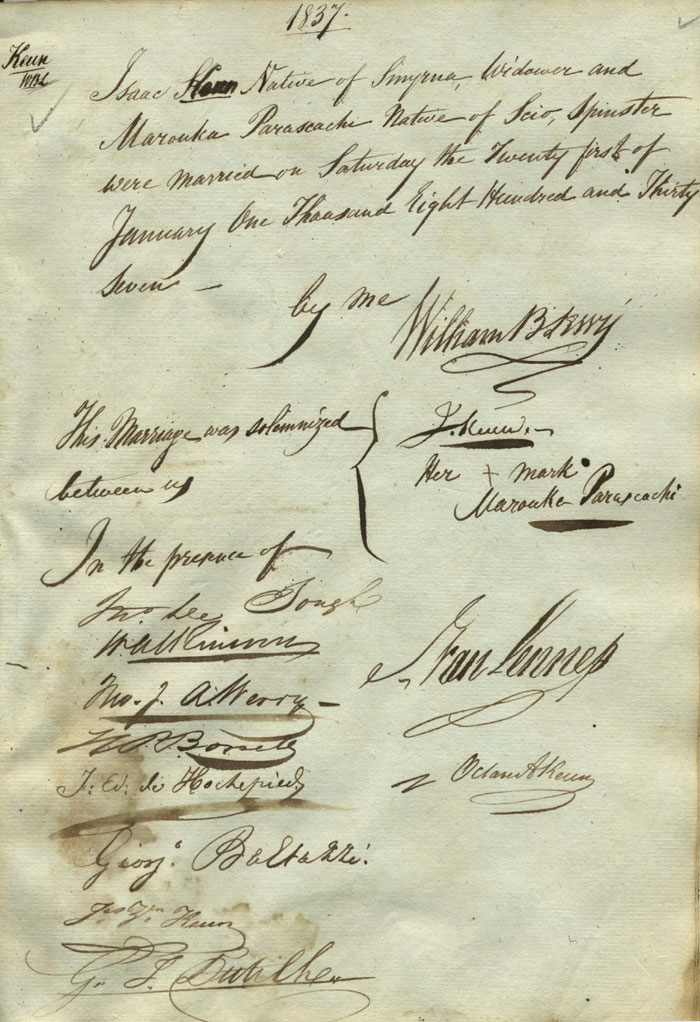 1837.
Keun
Isaac Keun Native of Smyrna, Widower and
Marouka Parascachi Native of Scio, Spinster
were married on Saturday the Twenty first of
January One Thousand Eight Hundred and Thirty
Seven —
by me
William B.
This Marriage was solemnized
between us
I. Keun.
Her + mark
Marouka Parascachi
In the presence of
Jno. Lee
van Lennep
Thos. J. A. Werry
Keun
J: Ed: de Hochepied
Giorj. Baltazzi.
Keun
G. F.